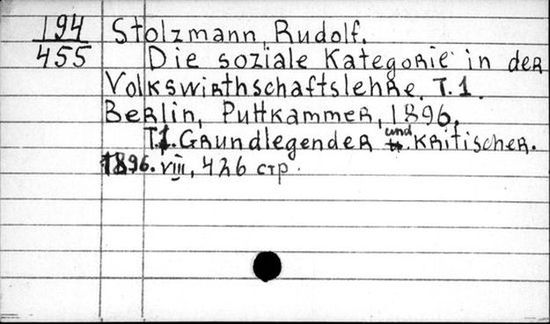 194 Stolzmann, Rudolf.
455 Die soziale Kategorie in der
Volkswirthschaftslehre. T.1.
Berlin, Puttkammer, 1896.
T.1. Grundlegender und kritischer.
1896. VIII, 426 стр.